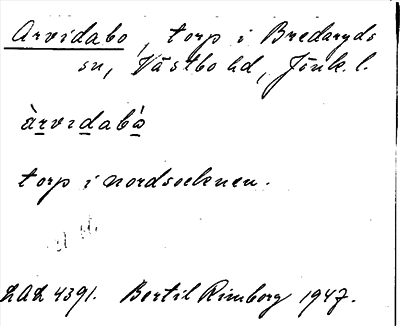 Arvidabo, torp i Bredaryds
sn, Västbo hd, Jönk. l.
àrvidabó
torp i nordsocknen.
LAL 4391. Bertil Rimborg 1947.